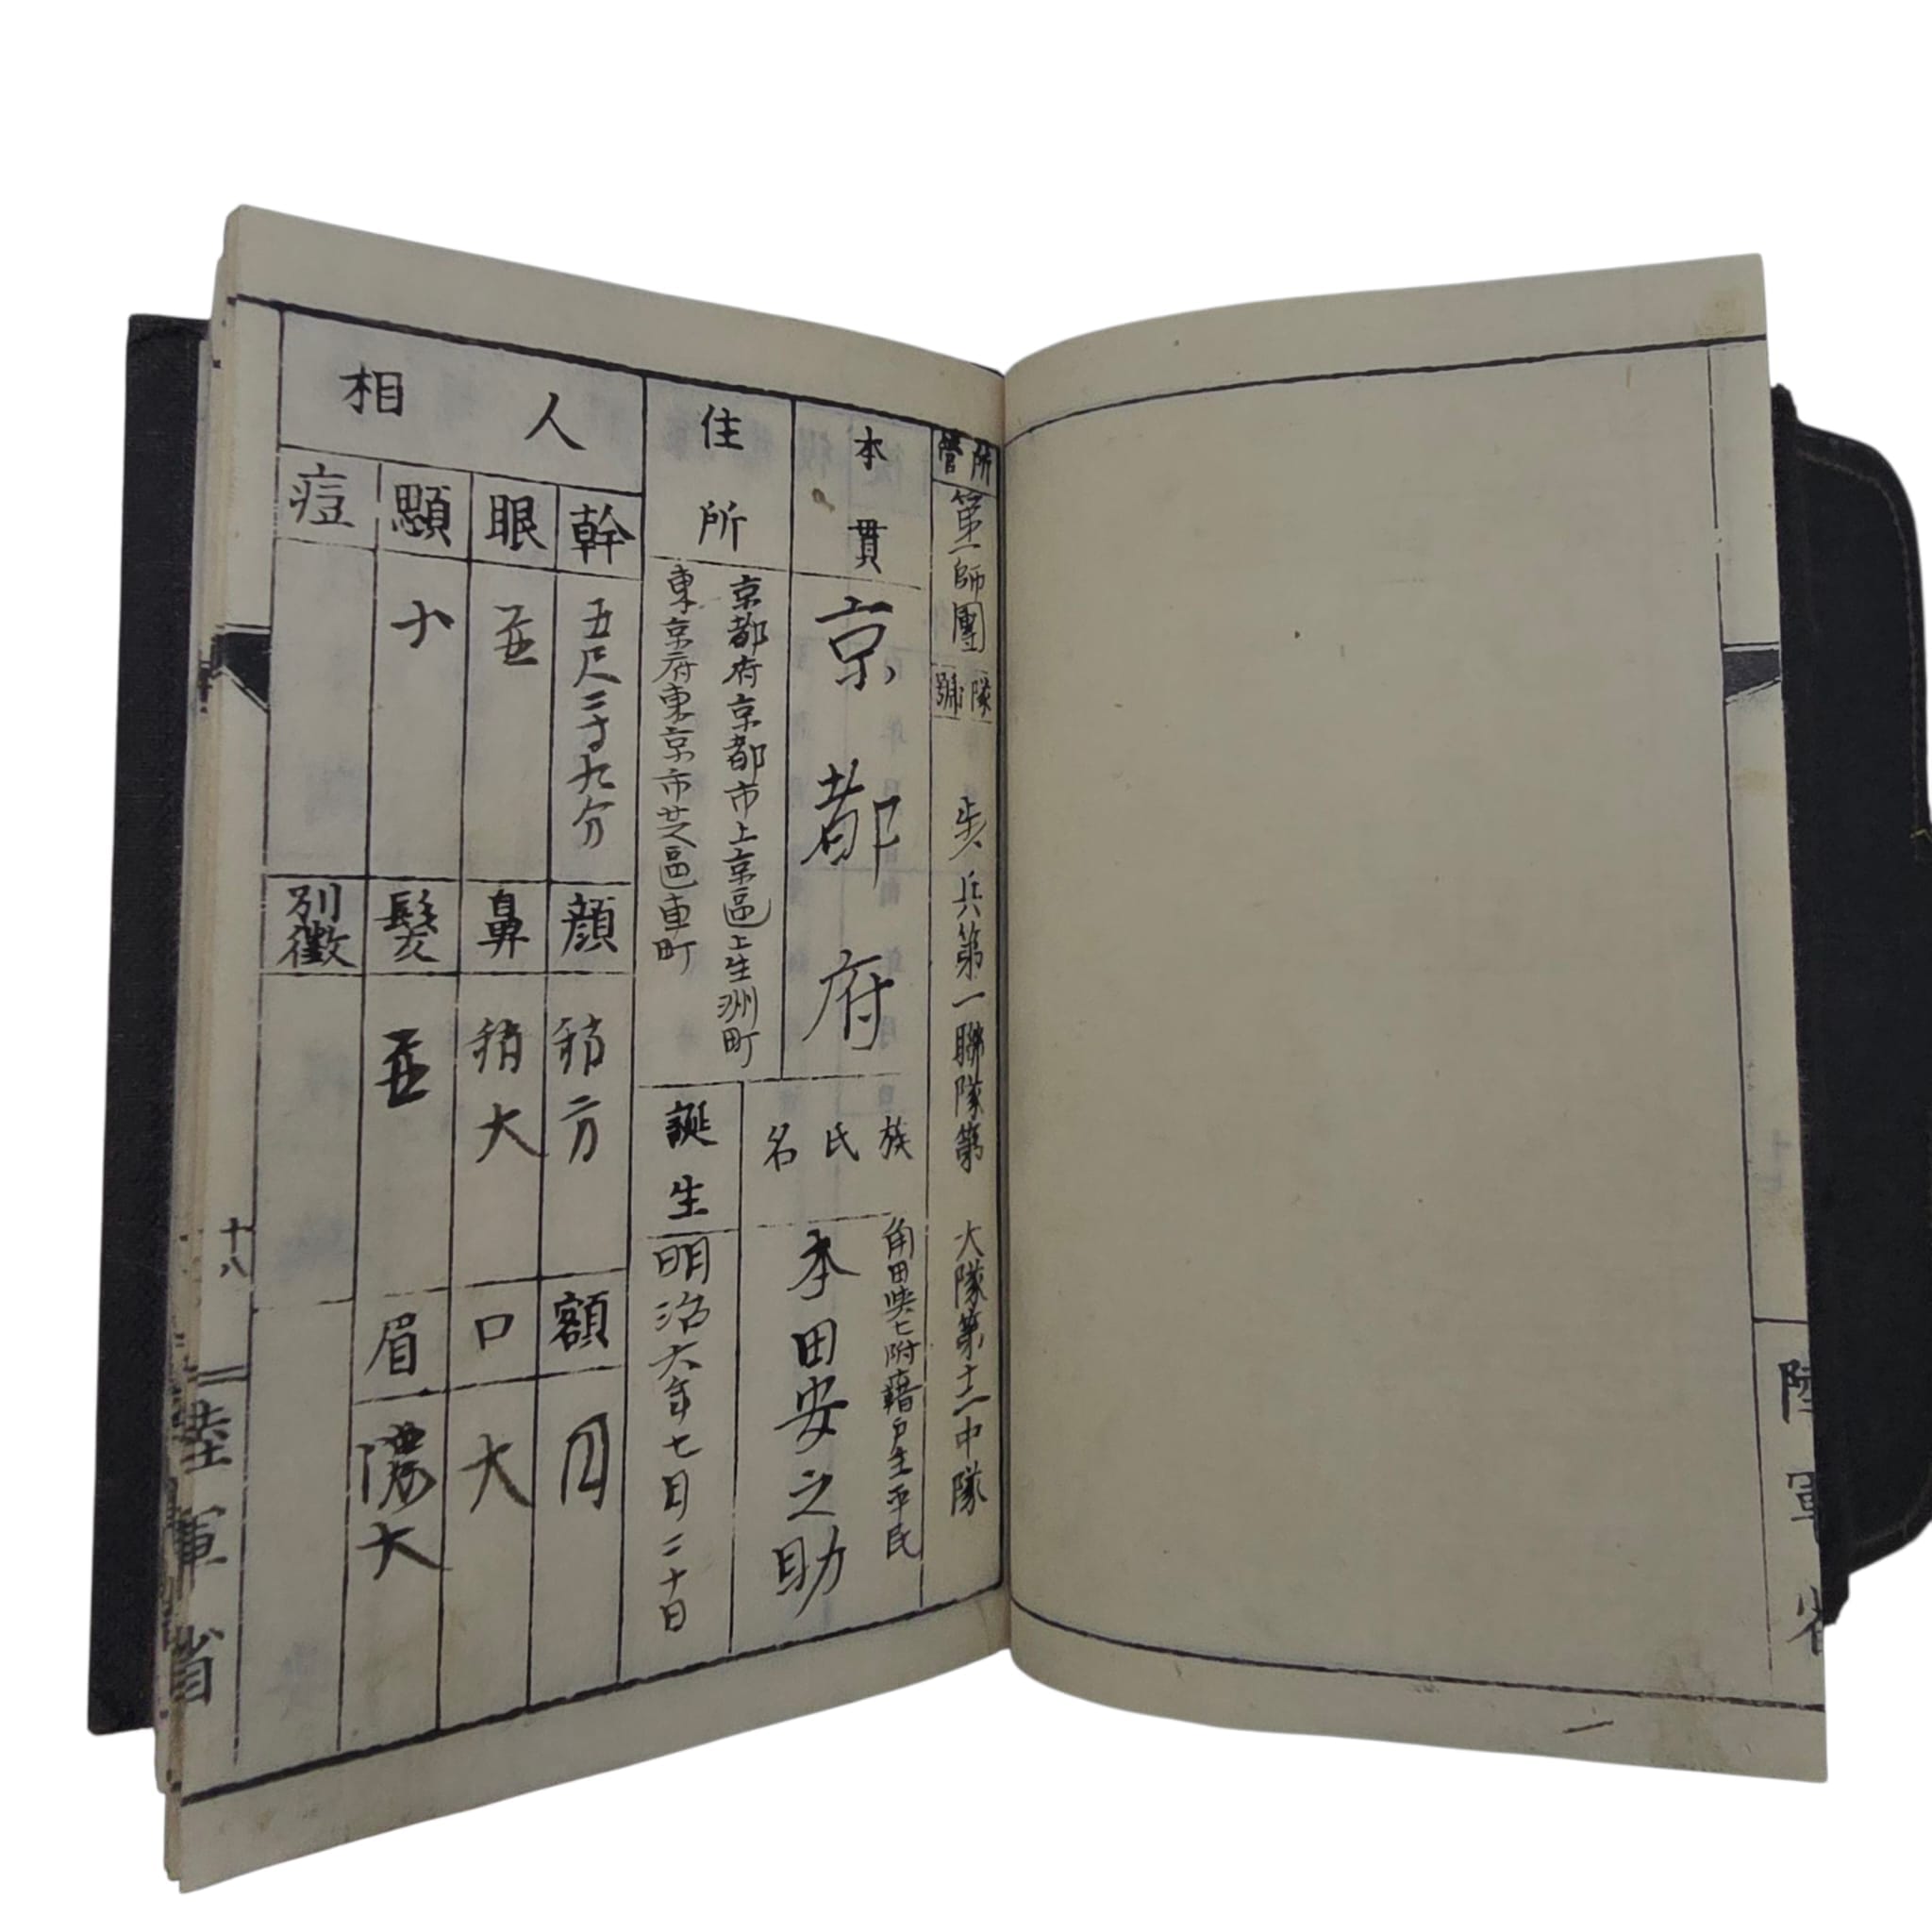 陸軍省
所管
第一師團
隊號
歩兵第一聯隊第 大隊第十二中隊
本貫
京都府
族氏名
角田 七附籍戸主平民
本田安之助
住所
京都府京都市上京區上生洲町
東京府東京市芝區車町
誕生
明治六年七月二十日
人相
幹
五尺二寸九分
顔
稍方
額
円
眼
並
鼻
稍大
口
大
顋
小
髮
並
眉
濃大
痘
別徴
十八
陸軍省